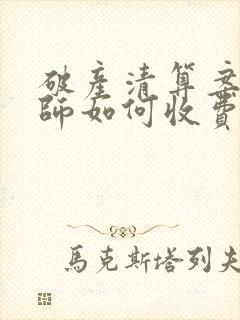 破產清算案
師如何收費
馬克斯塔列夫